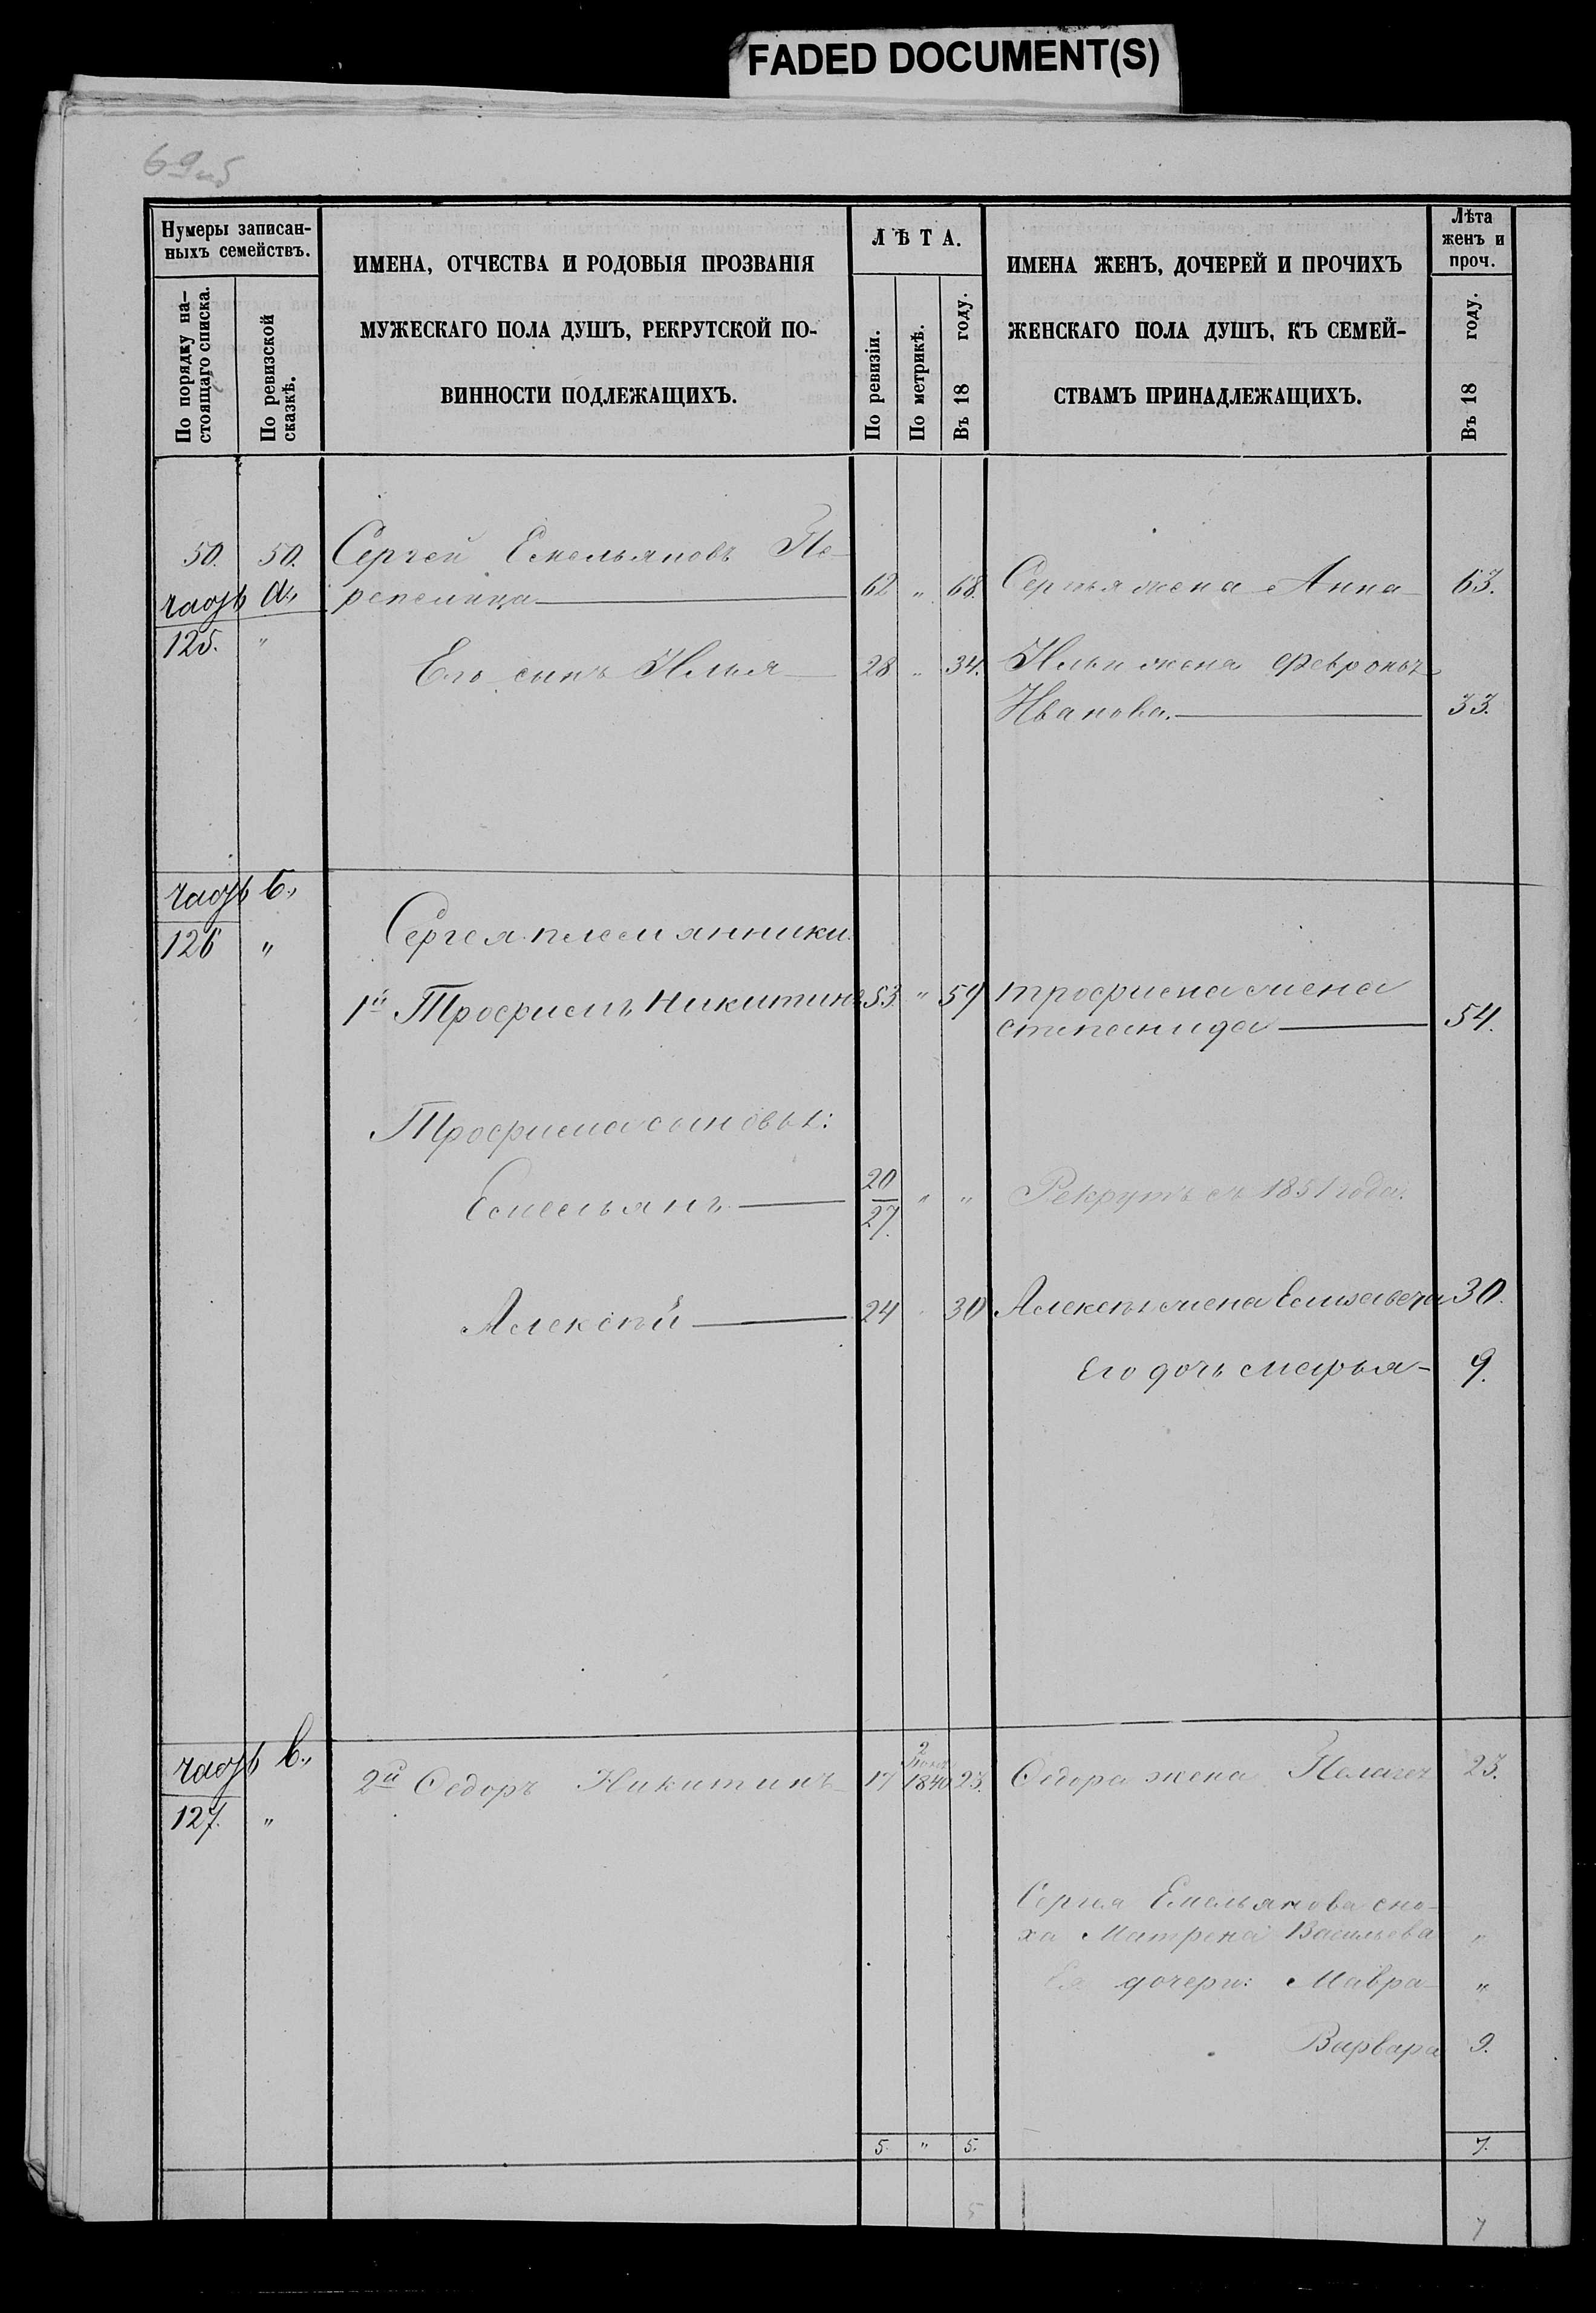 FADED DOCUMENT(S)
69об
Нумеры записан-
ныхъ семействъ.
По порядку на-
стоящаго списка.
По ревизской
сказкѣ.
ИМЕНА, ОТЧЕСТВА И РОДОВЫЯ ПРОЗВАНІЯ
МУЖЕСКАГО ПОЛА ДУШЪ, РЕКРУТСКОЙ ПО-
ВИННОСТИ ПОДЛЕЖАЩИХЪ.
ЛѢТА.
По ревизіи.
По метрикѣ.
Въ 18 году.
ИМЕНА ЖЕНЪ, ДОЧЕРЕЙ И ПРОЧИХЪ
ЖЕНСКАГО ПОЛА ДУШЪ, КЪ СЕМЕЙ-
СТВАМЪ ПРИНАДЛЕЖАЩИХЪ.
Лѣта
женъ и
проч.
Въ 18 году.
50. 50. Сергей Емельяновъ Пе-
часть а., репелица 62 " 68. Сергѣя жена Анна 63.
125. "
Его сынъ Илья 28 " 34. Ильи жена Февронья
Иванова. 33.
часть б.,
126 " Сергея племянники.
1й Трофимъ Никитинъ 53 " 59 Трофима жена
Степанида 54.
Трофима сыновья:
Емельянъ 20/27. " " Рекрутъ съ 1851 года.
Алексѣй 24 " 30 Алексѣя жена Елизавета 30.
Его дочь Марья 9.
часть в.,
127. " 2й Ѳедоръ Никитинъ 17 2 1840 23. Ѳедора жена Пелагея 23.
Сергея Емельянова сно-
ха Матрена Васильева "
Ея дочери: Мавра "
Варвара 9.
5. " 5. 7.
5 7